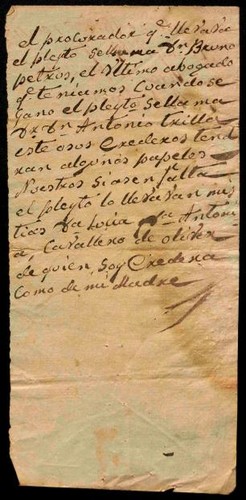 el procorador q.e llevava
el pleyto se llama D.n Bruno
petros, el ultimo abogado
q.e teniamos cuando se
gano el pleyto se llama
D.r D.n Antonio trillo
este o sus erederos tend
ran algunos papeles
Nuestros si asen falta
el pleyto lo llevavan mis
tias Da luisa Da Antoni
a Cavallero de oliver
de quien soy eredera
como de mi Madre